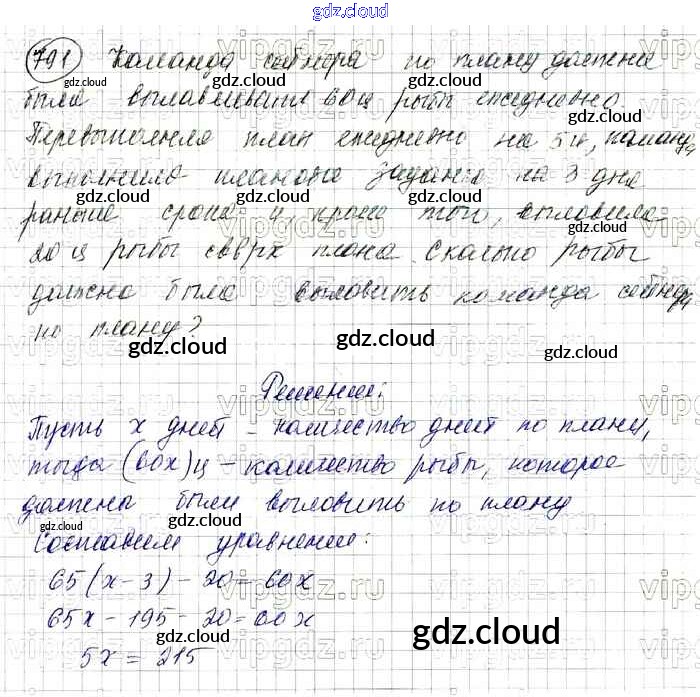 gdz.cloud
791 Команда сейнера по плану должна
была вылавливать 60 ц рыбы ежедневно.
Перевыполняя план ежедневно на 5 ц, команда
выполнила плановое задание на 3 дня
раньше срока и, кроме того, выловила
20 ц рыбы сверх плана. Сколько рыбы
должна была выловить команда сейнера
по плану?
gdz.cloud
Решение:
Пусть х дней – количество дней по плану,
тогда (60х) ц – количество рыбы, которое
должны были выловить по плану
gdz.cloud
Составим уравнение:
65(х-3) - 20 = 60х
65х - 195 - 20 = 60х
5х = 215
gdz.cloud